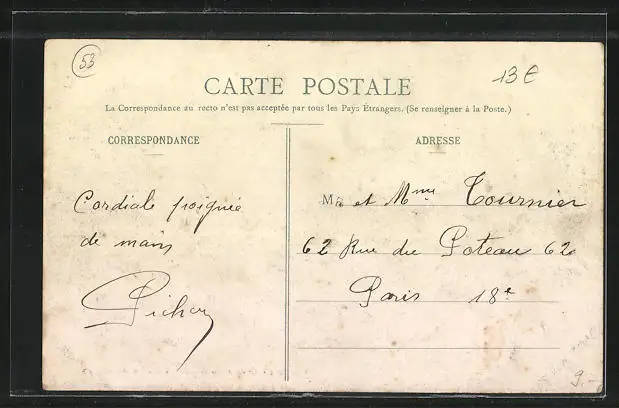 53
13€
CARTE POSTALE
La Correspondance au recto n'est pas acceptée par tous les Pays Étrangers. (Se renseigner à la Poste.)
CORRESPONDANCE
Cordiale poignée
de mains
ADRESSE
M. et Mme Tournier
62 Rue du Poteau 62
Paris 18e
9.-